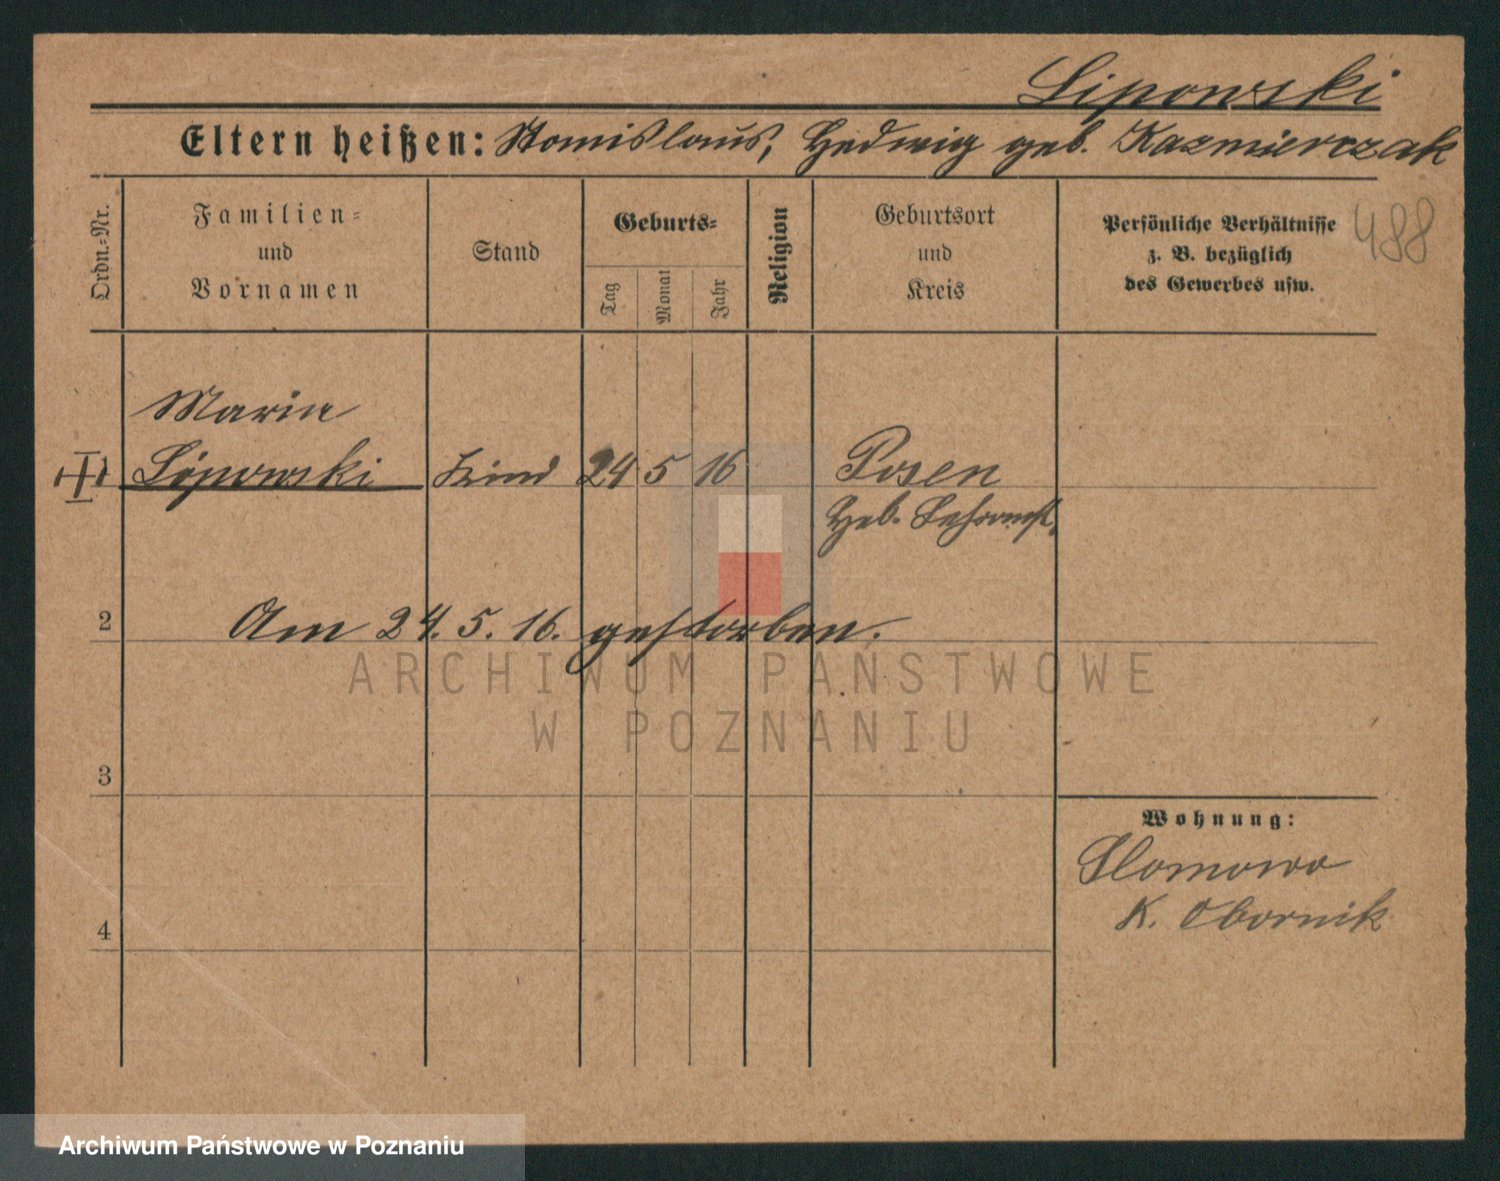 Lipowski
Eltern heißen: Stanislaus, Hedwig geb. Kazmierczak
Ordn.=Nr.
Familien=
und
Vornamen
Stand
Geburts=
Tag
Monat
Jahr
Religion
Geburtsort
und
Kreis
Persönliche Verhältnisse
z. B. bezüglich
des Gewerbes usw.
488
Maria
1 Lipowski Kind 24 5 16 Posen
Heb.
2 Am 24. 5. 16. gestorben.
ARCHIWUM PAŃSTWOWE
W POZNANIU
3
Wohnung:
Slomowo
K. Obornik
4
Archiwum Państwowe w Poznaniu